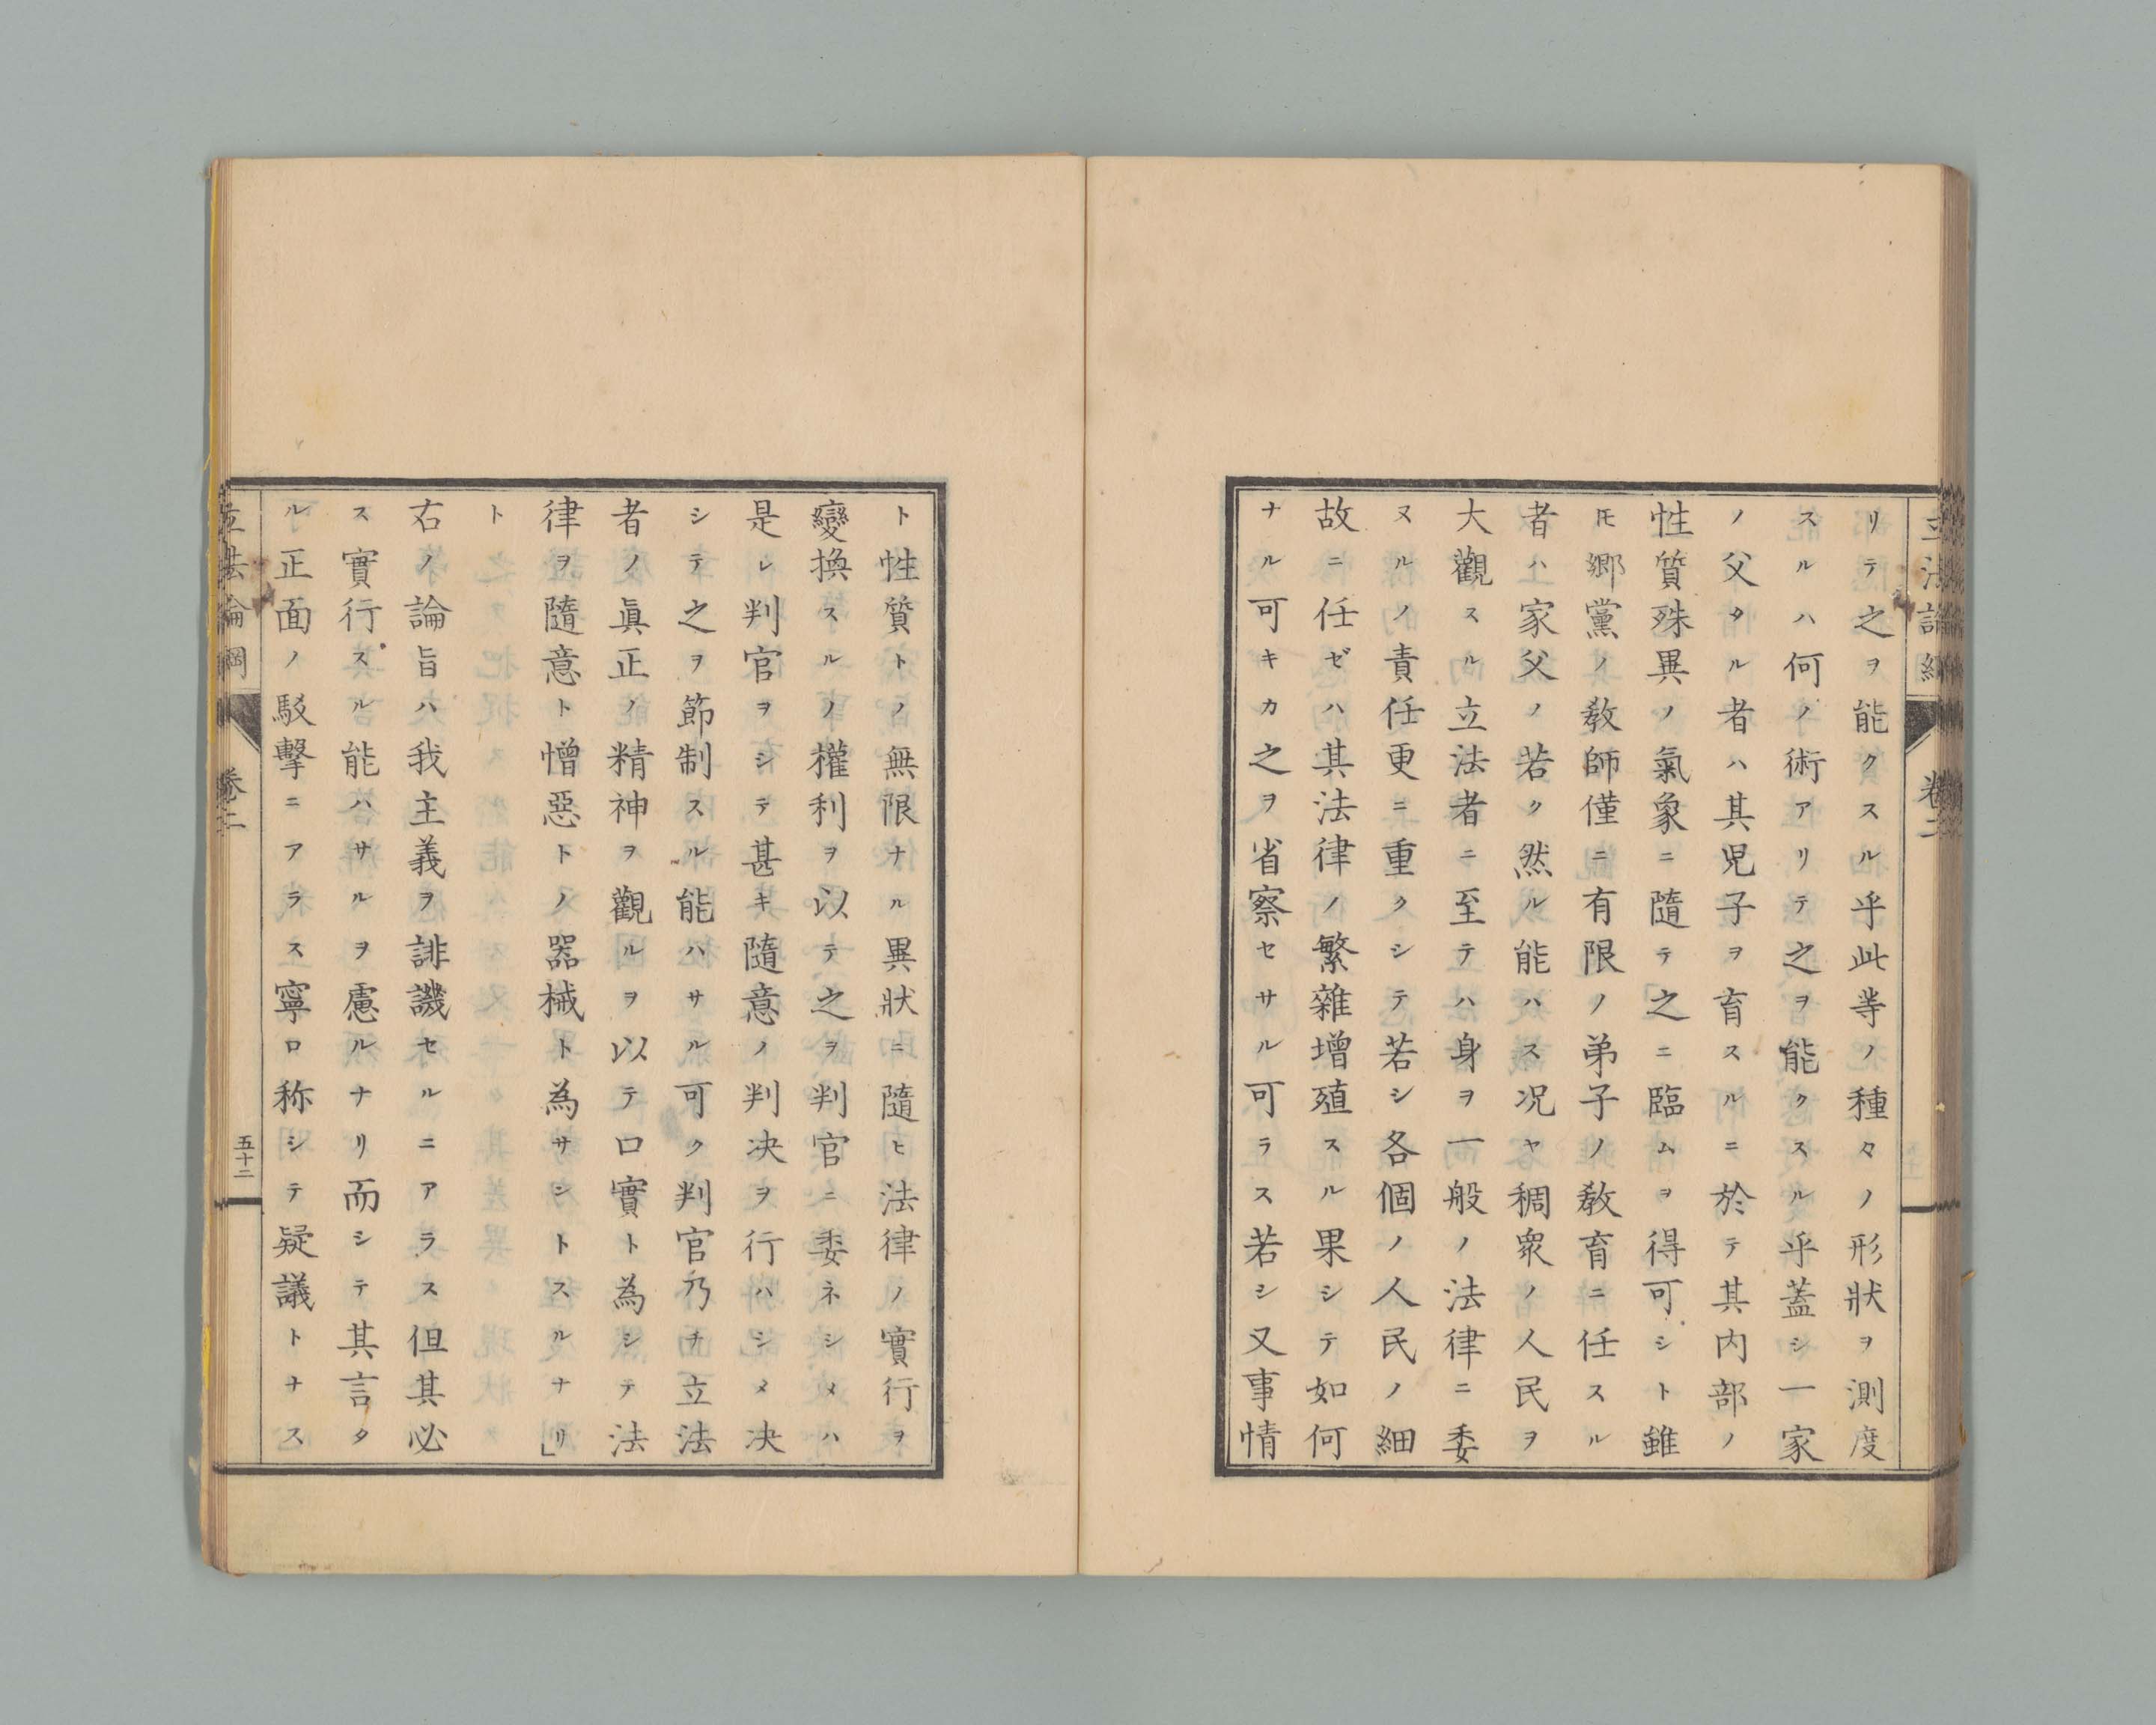 リテ之ヲ能クスル乎此等ノ種々ノ形狀ヲ測度
スルハ何ノ術アリテ之ヲ能クスル乎蓋シ一家
ノ父タル者ハ其児子ヲ育スルニ於テ其内部ノ
性質殊異ノ氣象ニ隨テ之ニ臨ムヲ得可シト雖
𪜈郷黨ノ敎師僅ニ有限ノ弟子ノ敎育ニ任スル
者ハ家父ノ若ク然ル能ハス况ヤ稠衆ノ人民ヲ
大觀スル立法者ニ至テハ身ヲ一般ノ法律ニ委
ヌルノ責任更ニ重クシテ若シ各個ノ人民ノ細
故ニ任ゼハ其法律ノ繁雜增殖スル果シテ如何
ナル可キカ之ヲ省察セサル可ラス若シ又事情
ト性質トノ無限ナル異狀ニ隨ヒ法律ノ實行ヲ
變換スルノ權利ヲ以テ之ヲ判官ニ委ネシメハ
是レ判官ヲシテ甚キ隨意ノ判决ヲ行ハシメ决
シテ之ヲ節制スル能ハサル可ク判官乃チ立法
者ノ眞正ノ精神ヲ觀ルヲ以テ口實ト為シテ法
律ヲ隨意ト憎惡トノ器械ト為サントスルナリ」
ト
右ノ論旨ハ我主義ヲ誹譏セルニアラス但其必
ス實行スル能ハサルヲ慮ルナリ而シテ其言タ
ル正面ノ駁擊ニアラス寧ロ称シテ疑議トナス
立法論綱
卷二
五十二